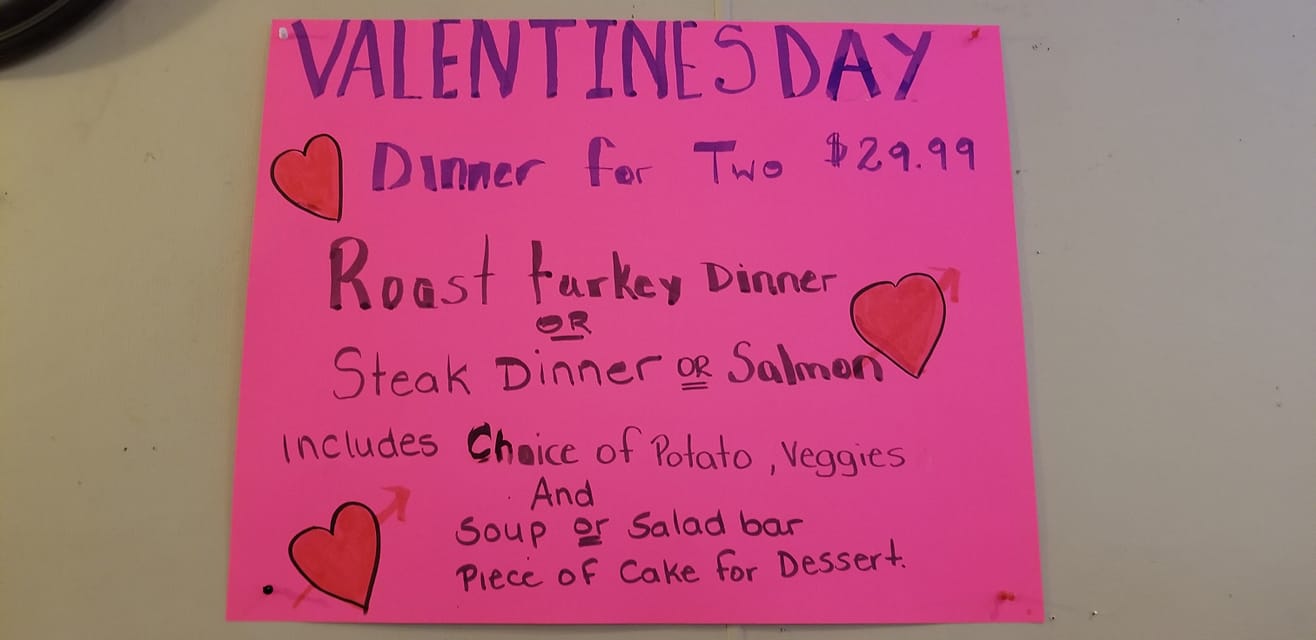 VALENTINES DAY
Dinner for Two $29.99
Roast turkey Dinner
OR
Steak Dinner OR Salmon
includes Choice of Potato, Veggies
And
Soup or Salad bar
Piece of Cake for Dessert.